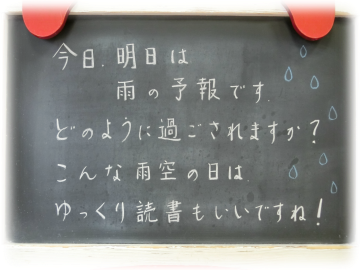 今日、明日は
雨の予報です。
どのように過ごされますか？
こんな雨空の日は
ゆっくり読書もいいですね！